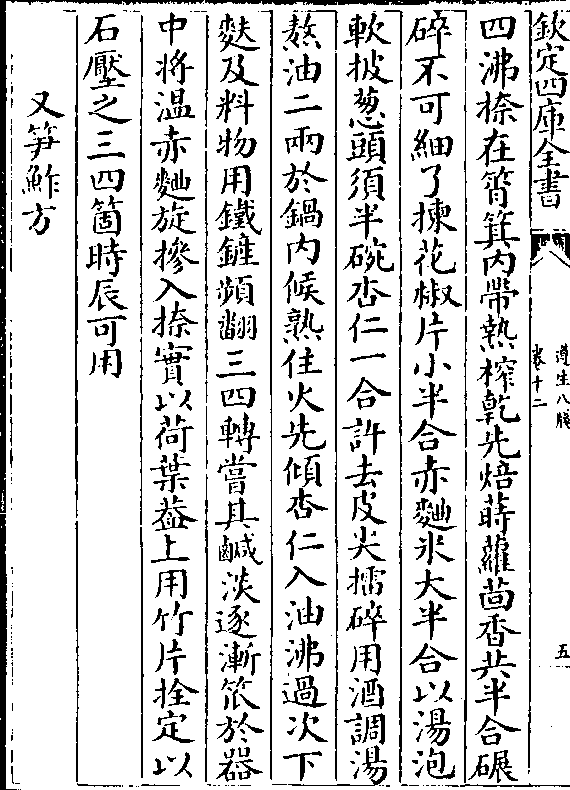 欽定四庫全書
遵生八牋
卷十二
五
四沸捺在筲箕内帶熱榨乾先焙蒔蘿茴香共半合碾
碎不可細了揀花椒片小半合赤麯米大半合以湯泡
軟披葱頭須半碗杏仁一合許去皮尖擂碎用酒調湯
熬油二兩於鍋内候熟住火先傾杏仁入油沸過次下
麩及料物用鐵鏟頻翻三四轉嘗其鹹淡逐漸笊於器
中将温赤麯旋摻入捺實以荷葉葢上用竹片拴定以
石壓之三四箇時辰可用
又笋鮓方